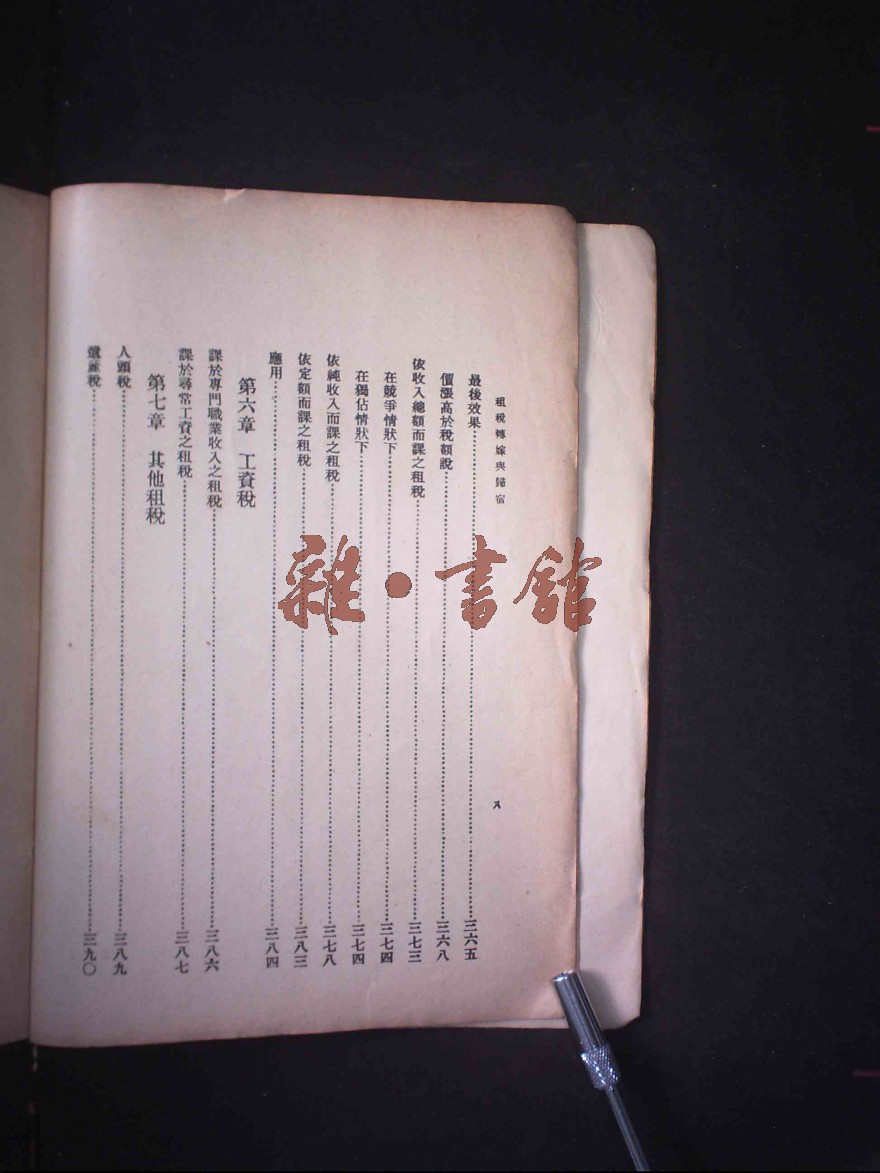 租稅轉嫁與歸宿
八
最後效果……三六五
價漲高於稅額說……三六八
依收入總額而課之租稅……三七三
在競爭情狀下……三七四
在獨佔情狀下……三七四
依純收入而課之租稅……三七八
依定額而課之租稅……三八三
應用……三八四
第六章 工資稅
課於專門職業收入之租稅……三八六
課於尋常工資之租稅……三八七
第七章 其他租稅
人頭稅……三八九
遺產稅……三九〇
雜·書館